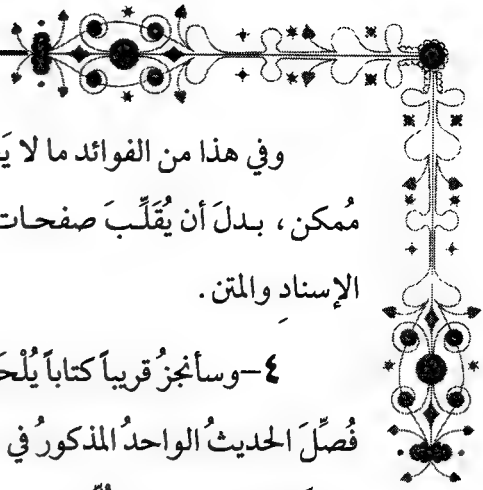 وفي هذا من الفوائد ما لا
مُمكن، بـدلَ أن يُقَلِّـبَ صفحـات
الإسنادِ والمتن.
٤-وسأنجزُ قريباً كتاباً
فُصِّلَ الحديثُ الواحدُ المذكورُ في